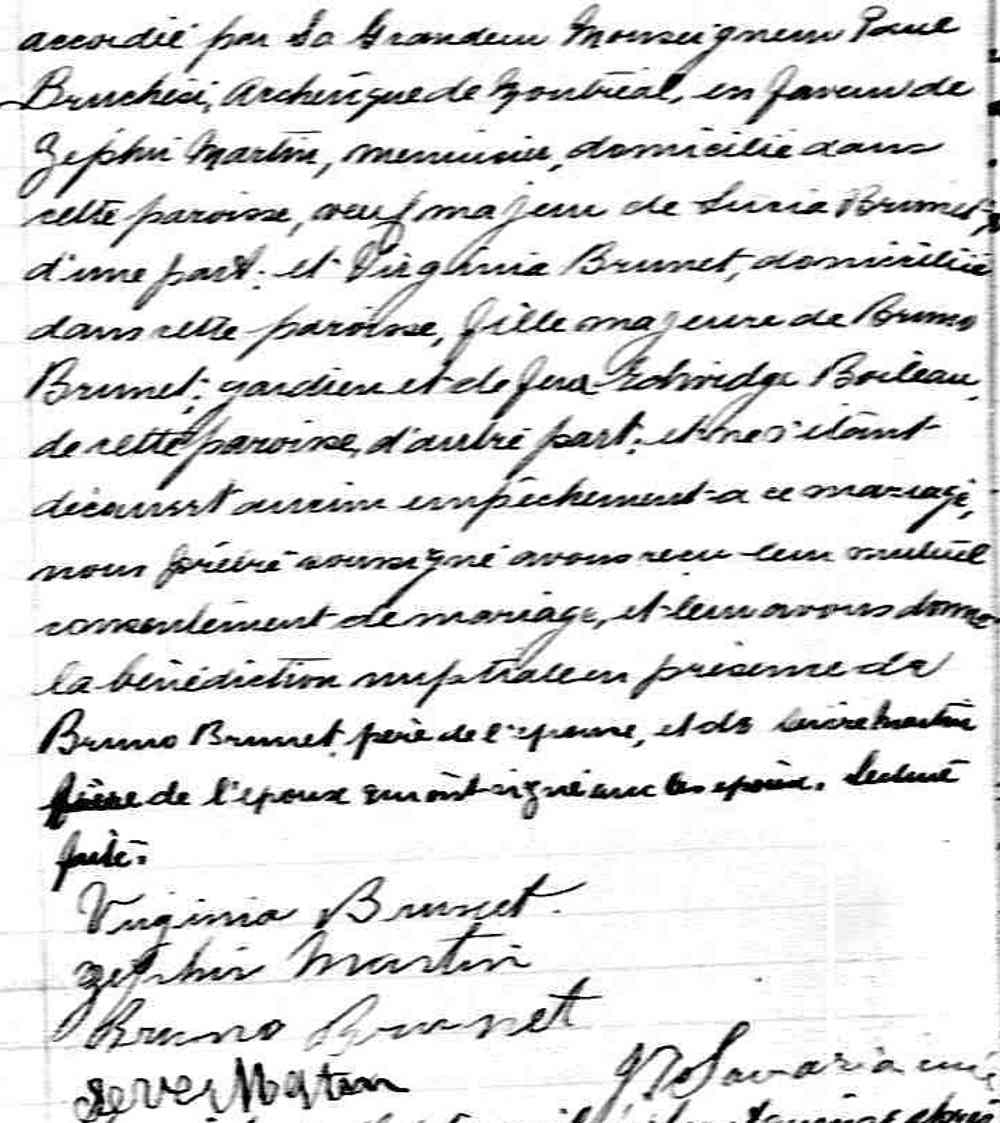 accordée par Sa Grandeur Monseigneur Paul
Bruchési, Archevêque de Montréal, en faveur de
Zéphir Martin, menuisier, domicilié dans
cette paroisse, veuf majeur de Brunet,
d'une part; et Virginia Brunet, domiciliée
dans cette paroisse, fille majeure de Bruno
Brunet, gardien et de feue Edwidge Boileau,
de cette paroisse, d'autre part; et ne s'étant
découvert aucun empêchement à ce mariage,
nous prêtre soussigné avons reçu leur mutuel
consentement de mariage, et leur avons donné
la bénédiction nuptiale en présence de
Bruno Brunet, père de l'épouse, et de Martin
frère de l'époux qui ont signé avec les époux. Lecture
faite.
Virginia Brunet.
Zéphir Martin
Bruno Brunet
Sever Martin
Savaria